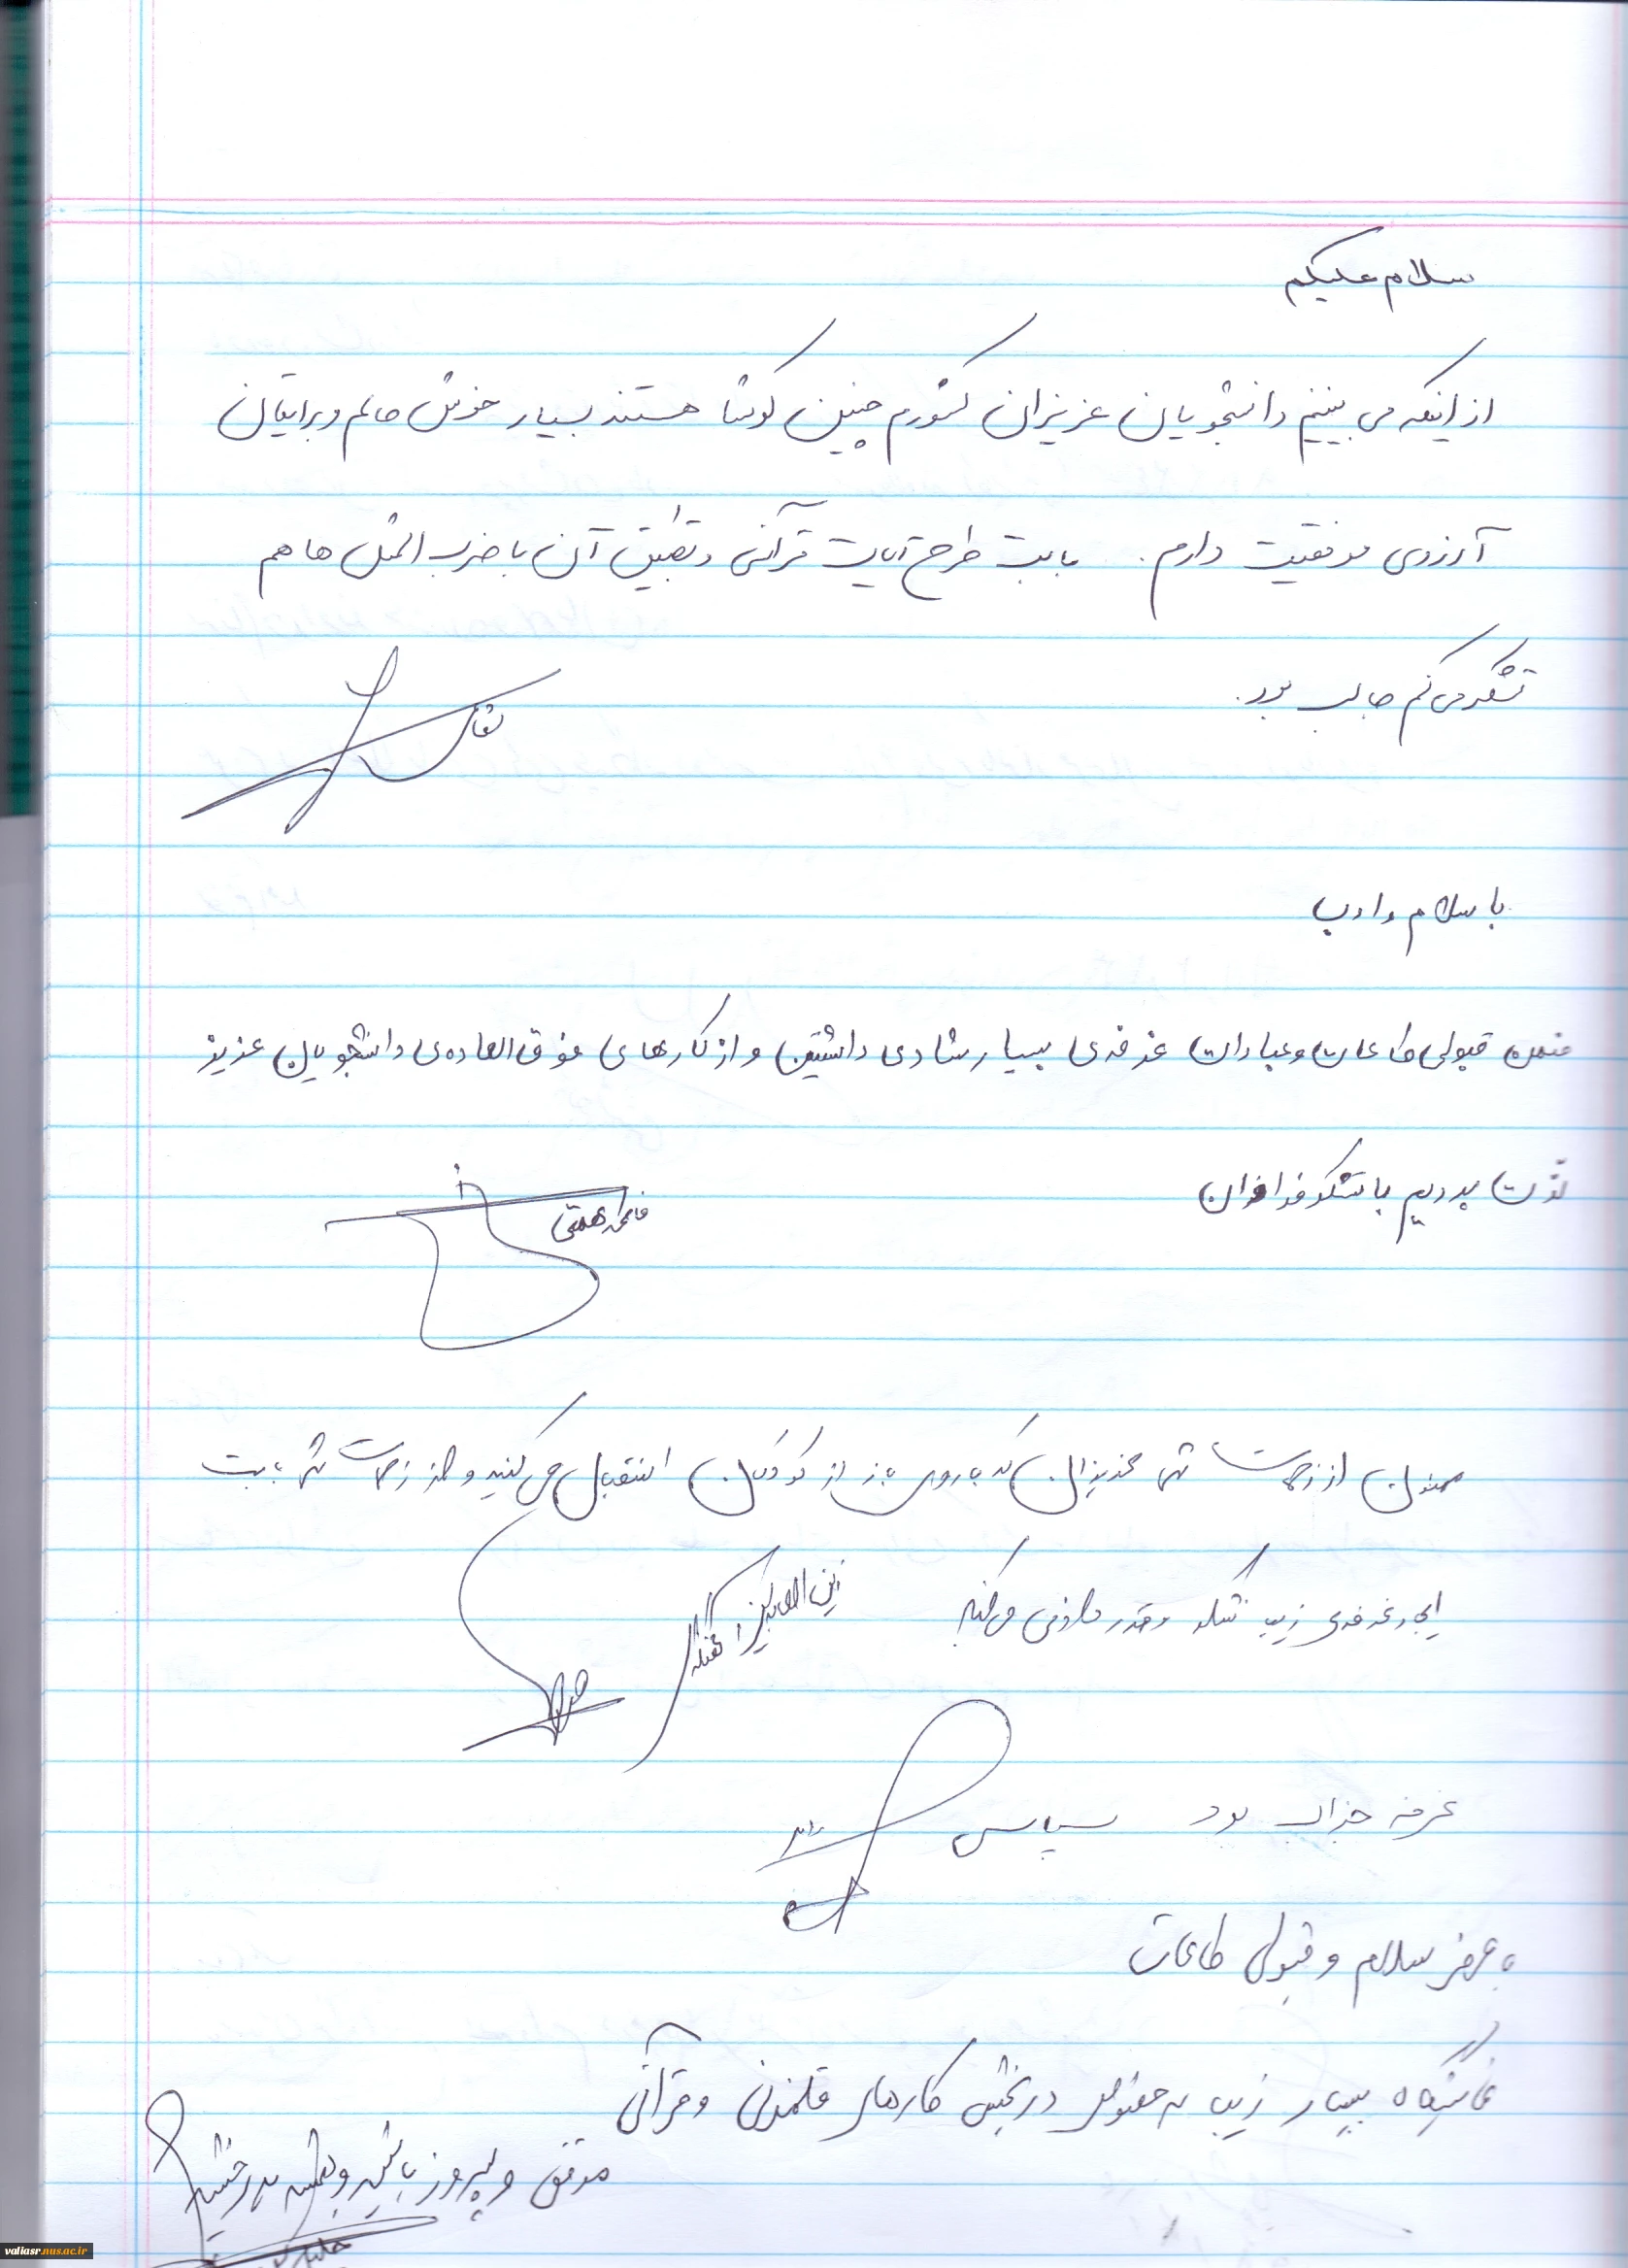 سلام علیکم
از اینکه می بینم دانشجویان عزیزان کشورم چنین کوشا هستند بسیار خوش حالم و برایتان
آرزوی موفقیت دارم. بابت طرح آیات قرآنی و تطبیق آن با ضرب المثل ها هم
تشکر می کنم جالب بود.
با سلام و ادب
ضمن قبولی طاعات و عبادات غرفه ی بسیار شادی داشتین و از کارهای فوق العاده ی دانشجویان عزیز
لذّت بردیم با تشکر فراوان
فاطمه همتی
ممنون از زحمات شما عزیزان که با روی باز از کودکان استقبال می کنید و از زحمات شما بابت
ایجاد غرفه ی زیبا تشکر و قدردانی می کنیم
زین العابدین
غرفه جذاب بود سپاس
با عرض سلام و قبولی طاعات
نمایشگاه بسیار زیبا به خصوص در بخش کارهای قلمزنی و قرآنی
موفق و پیروز باشید و همیشه بدرخشید
valiasr.nus.ac.ir